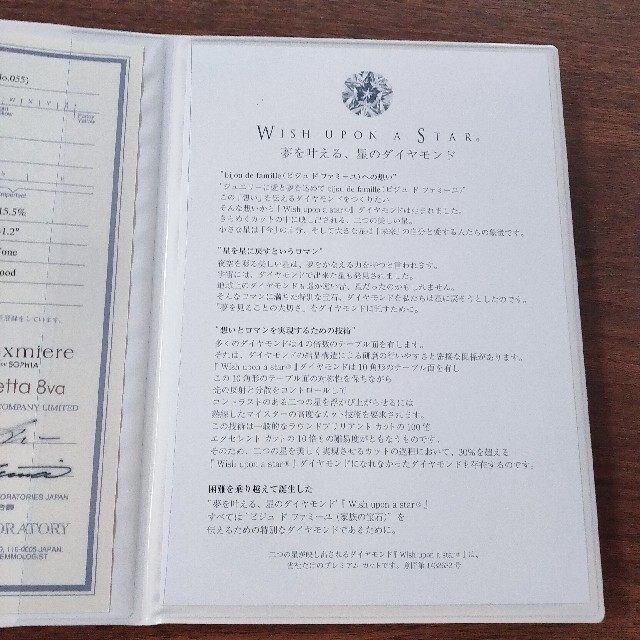 No.0551
15.5%
41.2°
None
Good
exmiere
SOPHIA
etta 8va
COMPANY LIMITED
LABORATORIES JAPAN
ORATORY
110-0005 JAPAN.
GEMMOLOGIST
WISH UPON A STAR®
夢を叶える、星のダイヤモンド
"bijou de famille（ビジュ ド ファミーユ）への想い"
"ジュエリーに愛と夢を込めて bijou de famille（ビジュ ド ファミーユ）"
この「想い」を伝えるダイヤモンドをつくりたい
そんな想いから『Wish upon a star®』ダイヤモンドは生まれました。
きらめくカットの中に映し出される、二つの美しい星。
小さな星は「今」の自分、そして大きな星は「未来」の自分と愛する人たちの象徴です。
"星を星に戻すというロマン"
夜空を彩る美しい星は、夢をかなえる力を持つと言われます。
宇宙には、ダイヤモンドで出来た星も発見されました。
地球上のダイヤモンドも遥か遠い昔、星だったのかもしれません。
そんなロマンに満ちた特別な宝石、ダイヤモンドを私たちは星に戻そうとしたのです。
「夢を見ることの大切さ」をダイヤモンドに託すために。
"想いとロマンを実現するための技術"
多くのダイヤモンドは4の倍数のテーブル面を有します。
それは、ダイヤモンドの結晶構造による研磨の行いやすさと密接な関係があります。
『Wish upon a star®』ダイヤモンドは10角形のテーブル面を有し
この10角形のテーブル面の対称性を保ちながら
光の反射と分散をコントロールして
コントラストのある二つの星を浮かび上がらせるには
熟練したマイスターの高度なカット技術を要求されます。
この技術は一般的なラウンドブリリアントカットの100倍
エクセレント カットの10倍もの難易度がともなうものです。
そのため、二つの星を美しく実現させるカットの過程において、30%を超える
『Wish upon a star®』ダイヤモンドになれなかったダイヤモンドも存在するのです。
困難を乗り越えて誕生した
"夢を叶える、星のダイヤモンド"『Wish upon a star®』
すべては"ビジュ ド ファミーユ（家族の宝石）"を
伝えるための特別なダイヤモンドであるために。
二つの星が映し出されるダイヤモンド『Wish upon a star®』は、
当社だけのプレミアム カットです。意匠第1432632号